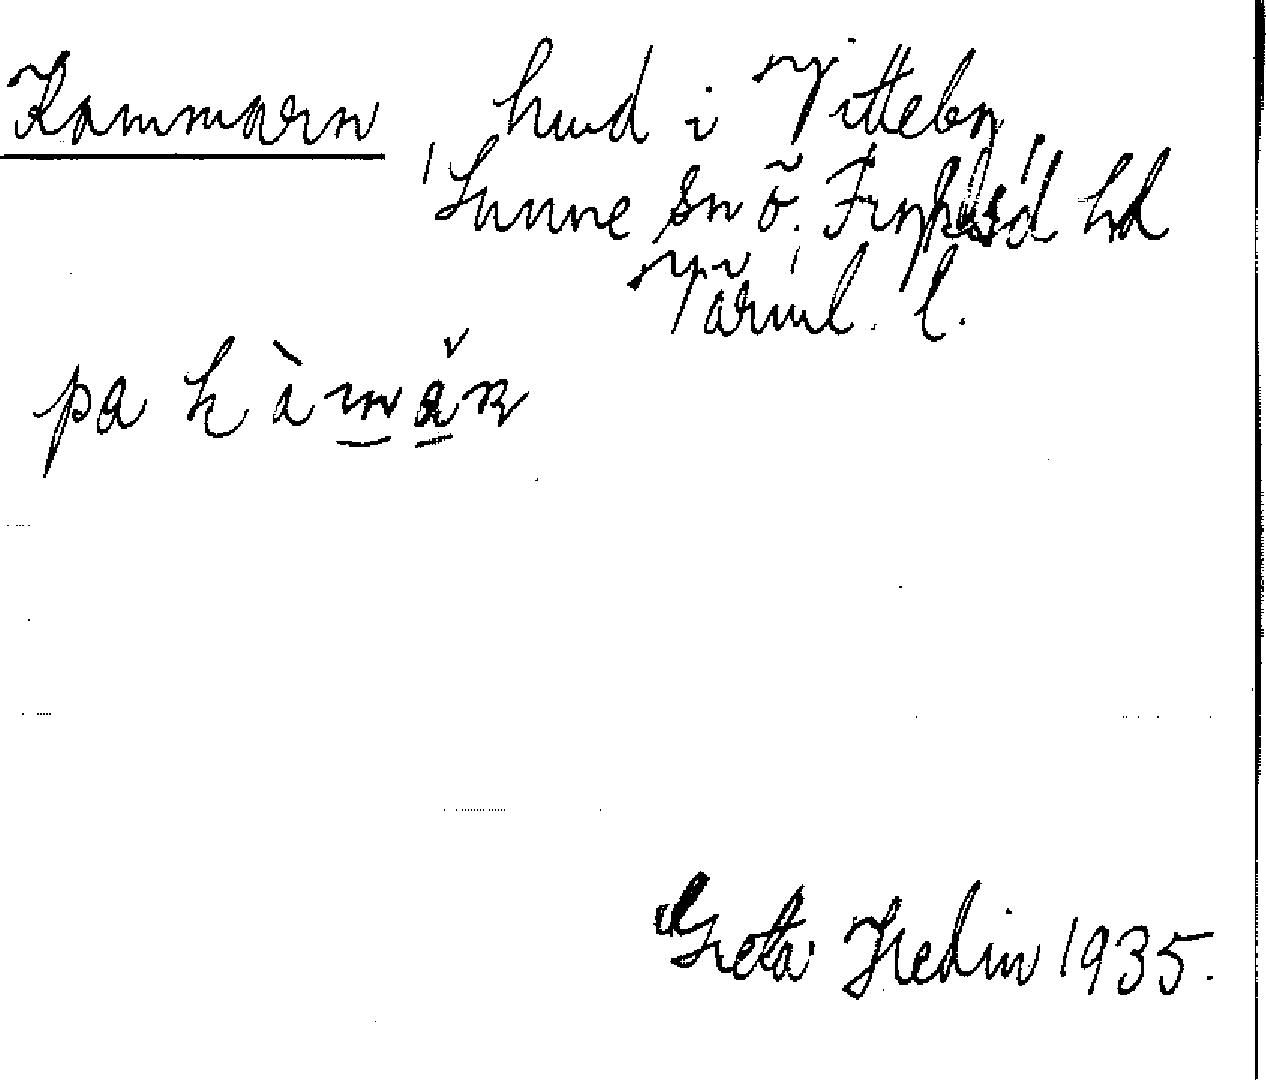 Kammarn hmd i Vitteby
Sunne sn ö. Fryksd hd
Värml. l.
pa kàmăṛ
Greta Hedin 1935.